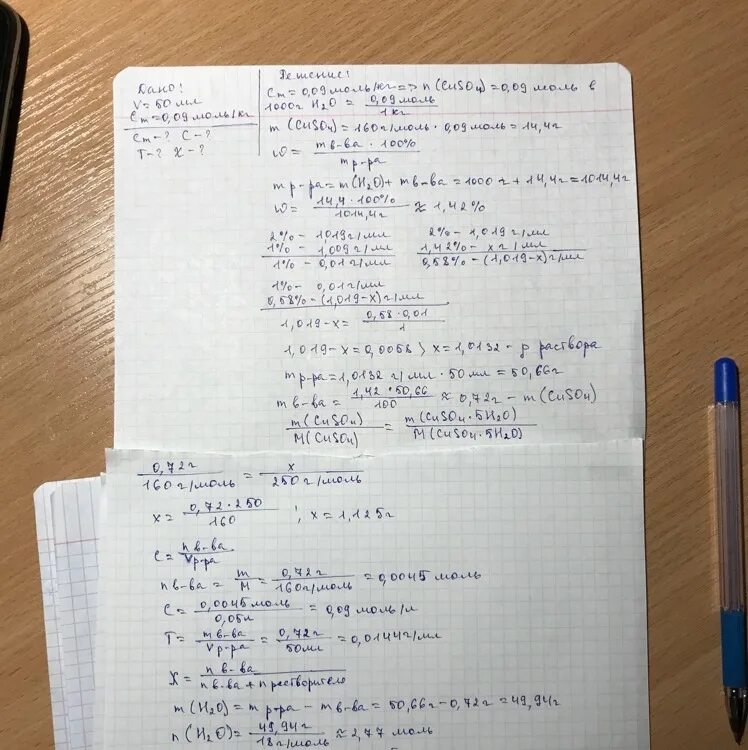 Дано!
V = 50 мл
Cm = 0,09 моль/кг
Cm - ? C - ?
T - ? X - ?
Решение!
Cm = 0,09 моль/кг => n (CuSO4) = 0,09 моль в
1000г H2O = 0,09 моль / 1 кг
m (CuSO4) = 160 г/моль · 0,09 моль = 14,4г
ω = m в-ва · 100% / m р-ра
m р-ра = m(H2O) + m в-ва = 1000 г + 14,4г = 1014,4г
ω = 14,4 · 100% / 1014,4г ≈ 1,42%
2% - 1,019 г/мл
1% - 1,009 г/мл
1% - 0,01 г/мл
2% - 1,019 г/мл
1,42% - x г/мл
0,58% - (1,019 - x) г/мл
1% - 0,01 г/мл
0,58% - (1,019 - x) г/мл
1,019 - x = 0,58 · 0,01 / 1
1,019 - x = 0,0058; x = 1,0132 - ρ раствора
m р-ра = 1,0132 г/мл · 50 мл = 50,66г
m в-ва = 1,42 · 50,66 / 100 ≈ 0,72г - m (CuSO4)
m (CuSO4) / M (CuSO4) = m (CuSO4 · 5H2O) / M (CuSO4 · 5H2O)
0,72г / 160 г/моль = x / 250 г/моль
x = 0,72 · 250 / 160 ; x = 1,125г
C = n в-ва / V р-ра
n в-ва = m / M = 0,72г / 160 г/моль = 0,0045 моль
C = 0,0045 моль / 0,05л = 0,09 моль/л
T = m в-ва / V р-ра = 0,72г / 50мл = 0,0144 г/мл
X = n в-ва / n в-ва + n растворителя
m (H2O) = m р-ра - m в-ва = 50,66г - 0,72г = 49,94г
n (H2O) = 49,94г / 18 г/моль ≈ 2,77 моль